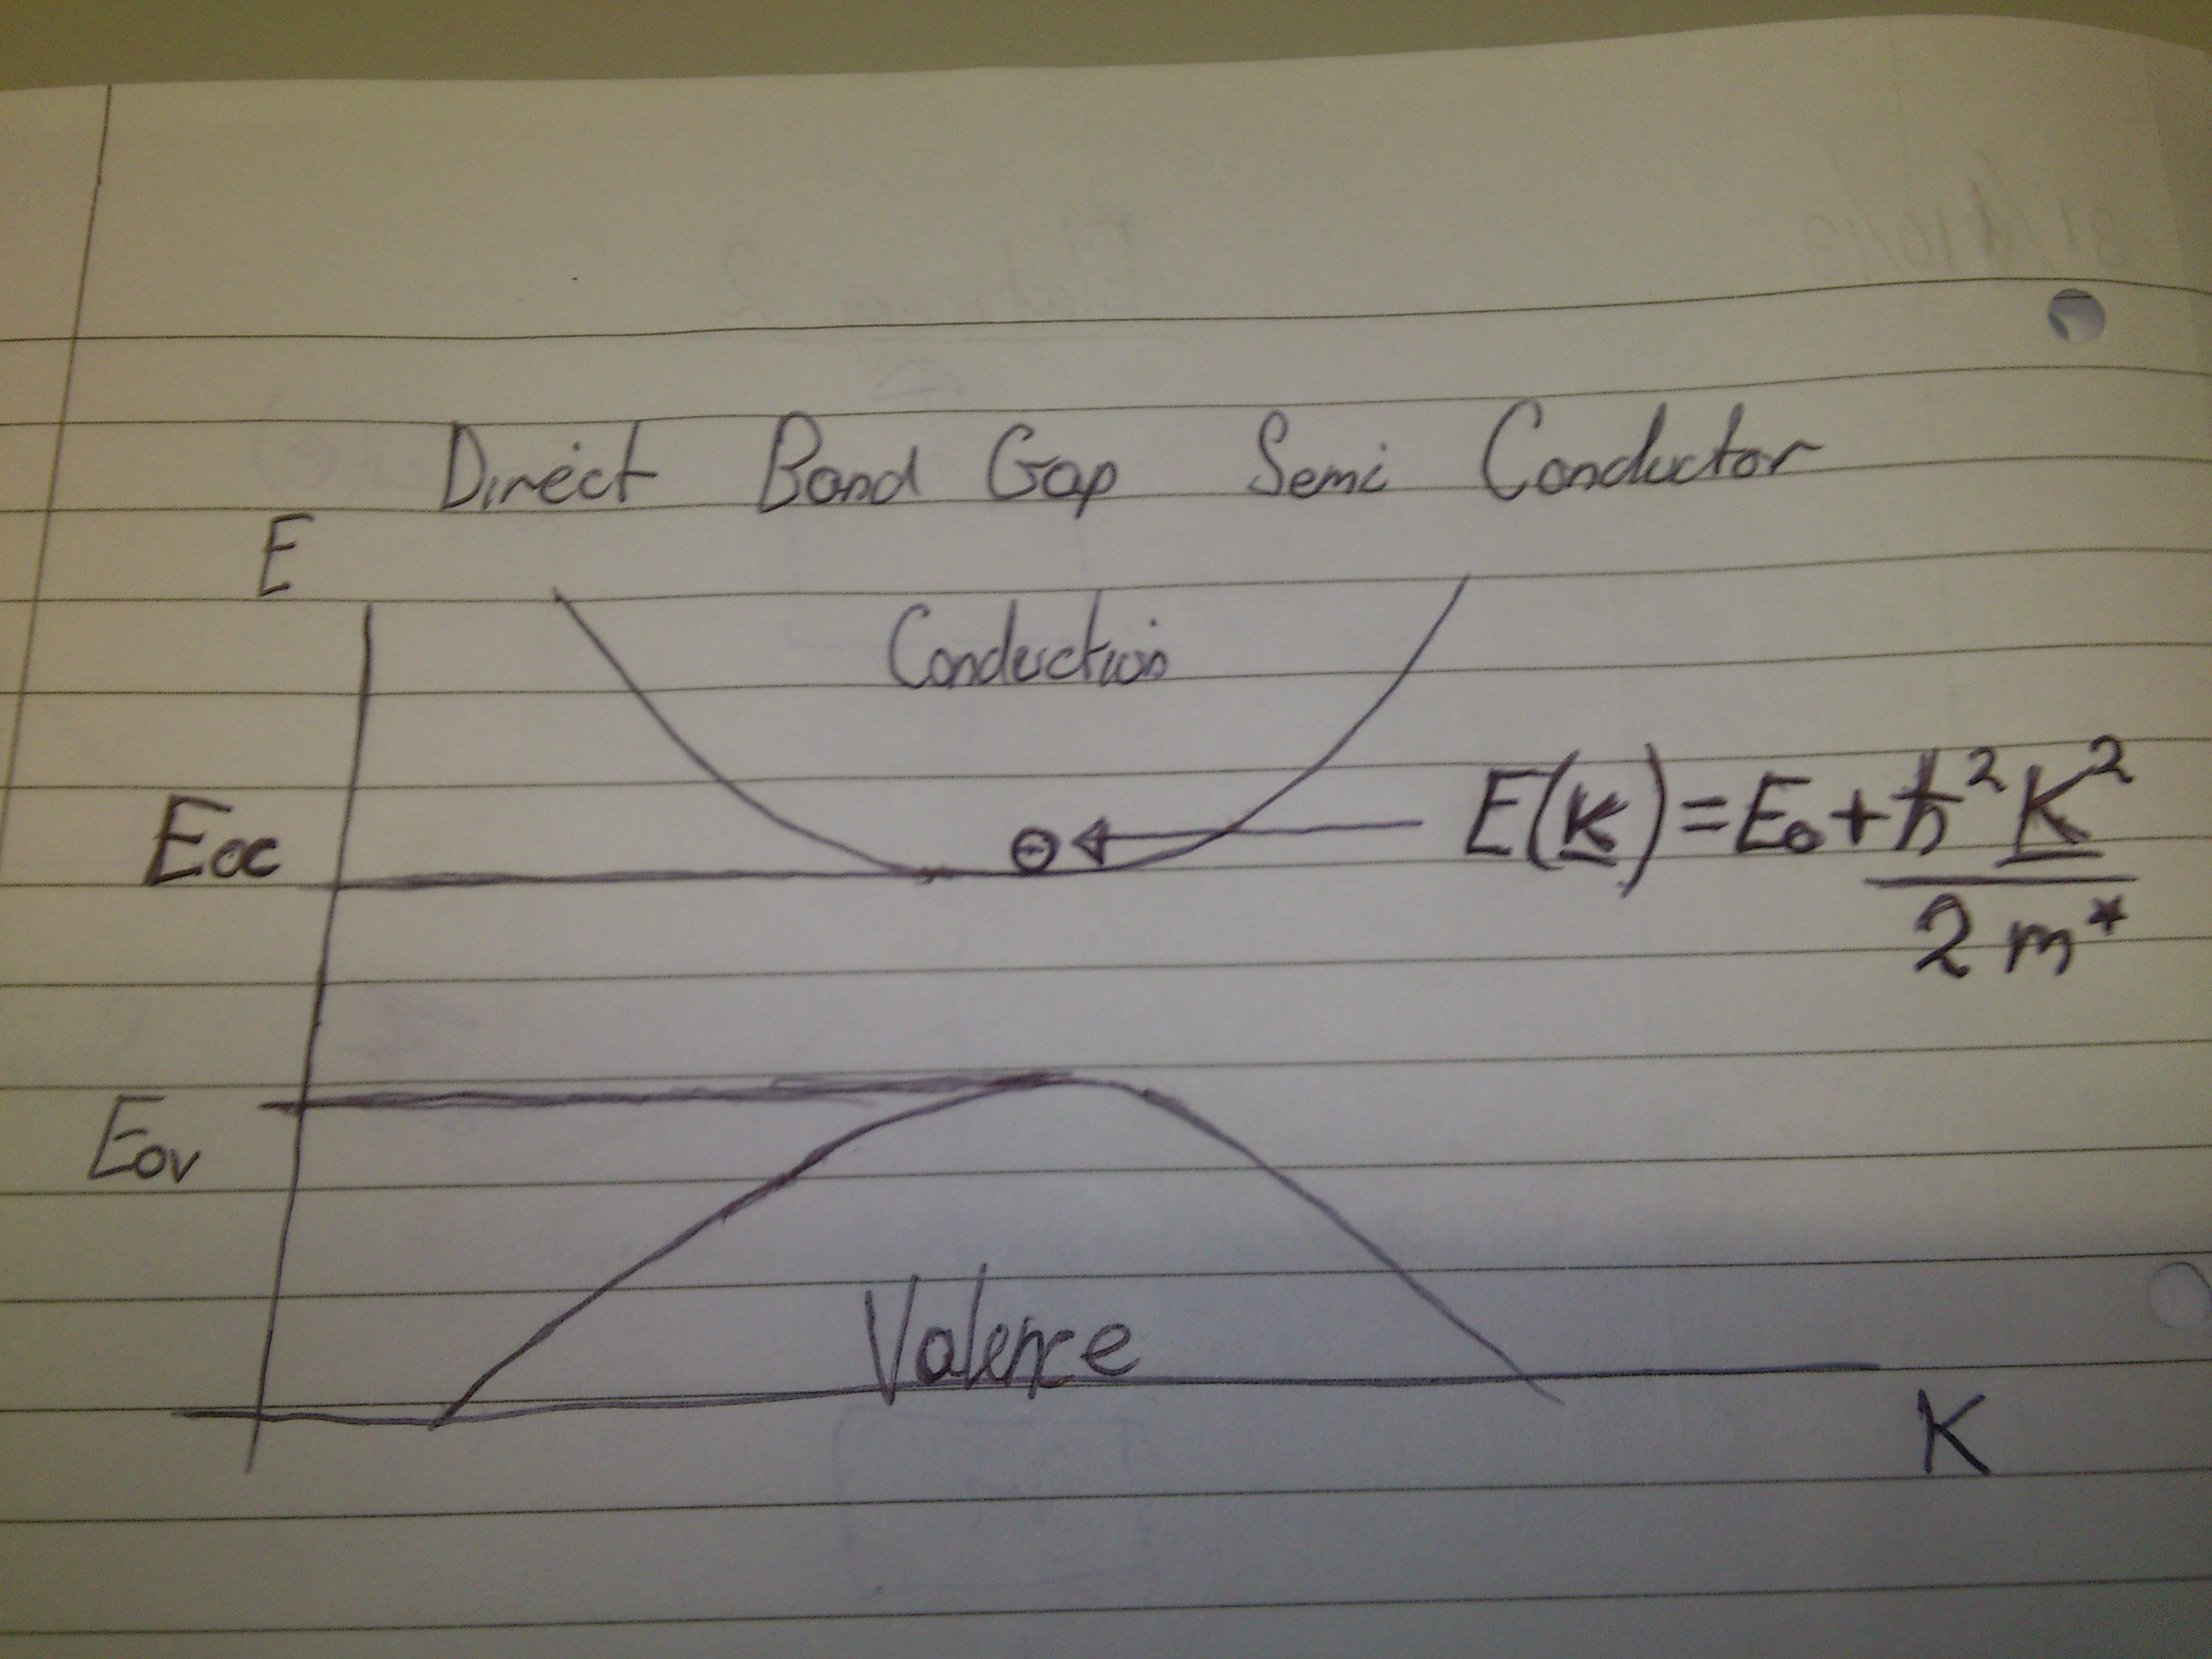 Direct Band Gap Semi Conductor
E
Conduction
E(k) = E₀ + ħ² k²
2 m*
E₀c
⊖
E₀v
Valence
K